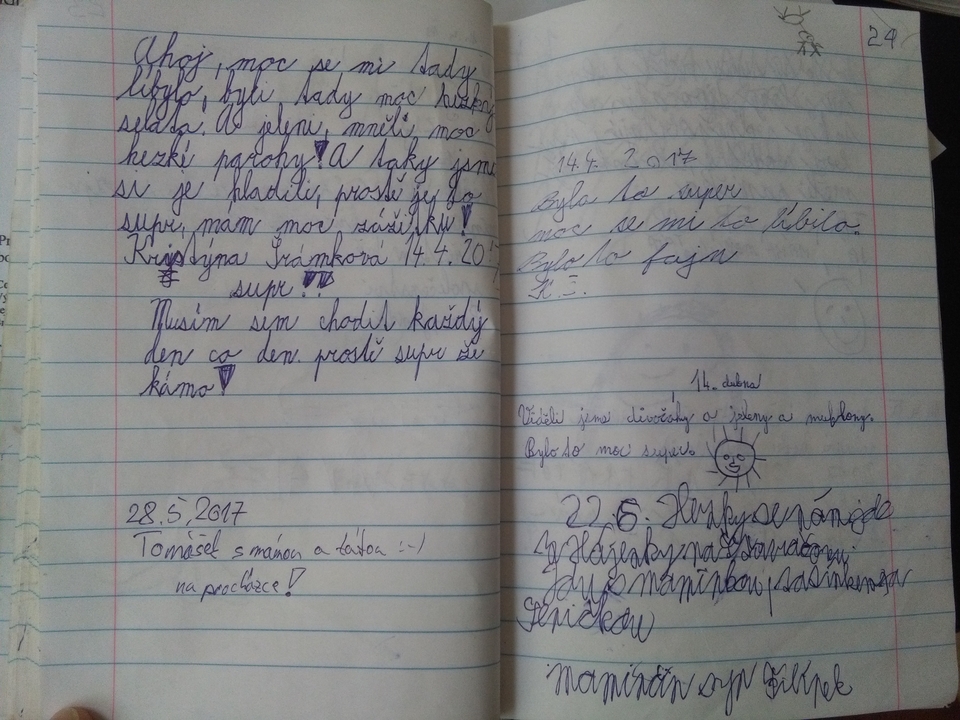 Ahoj, moc se mi tady
líbylo, byli tady moc
selata. A jeleni, mněli moc
hezké parohy! A taky jsme
si je hladili, prostě je to
supr, mám moc zážitku!
Kristýna Šrámková 14.4. 2017
supr!!
Musím sem chodit každý
den co den. prostě supr že
kámo!
28.5.2017
Tomášek s mámou a tátou :-)
na procházce!
24
14.4. 2017
Bylo to super
moc se mi to líbilo.
Bylo to fajn
14. dubna
Viděli jsme divočáky a jeleny a muflony.
Bylo to moc super.
22.6. Hezky se nám jde
z Hájenky na
s maminkou,
maminčin syn Filípek